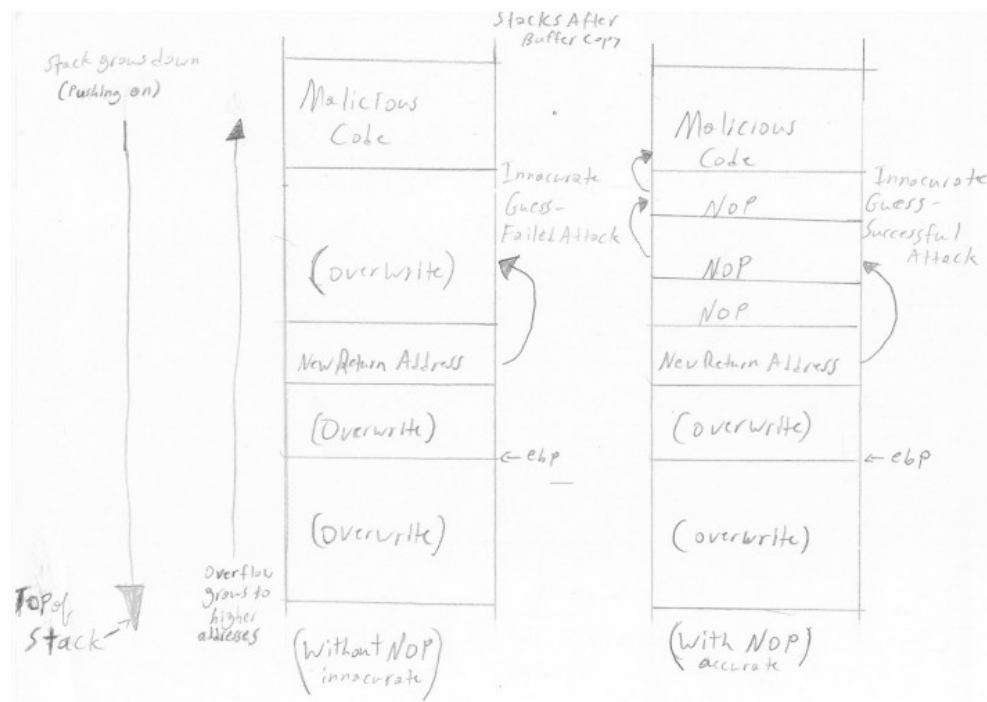 Stacks After
Buffer Copy
Stack grows down
(Pushing on)
Overflow
grows to
higher
addresses
TOP of
Stack
Malicious
Code
(overwrite)
New Return Address
(Overwrite)
(Overwrite)
(Without NOP)
innacurate
Innacurate
Guess-
Failed Attack
← ebp
Malicious
Code
NOP
NOP
NOP
New Return Address
(overwrite)
(overwrite)
(With NOP)
accurate
Innacurate
Guess-
Successful
Attack
← ebp